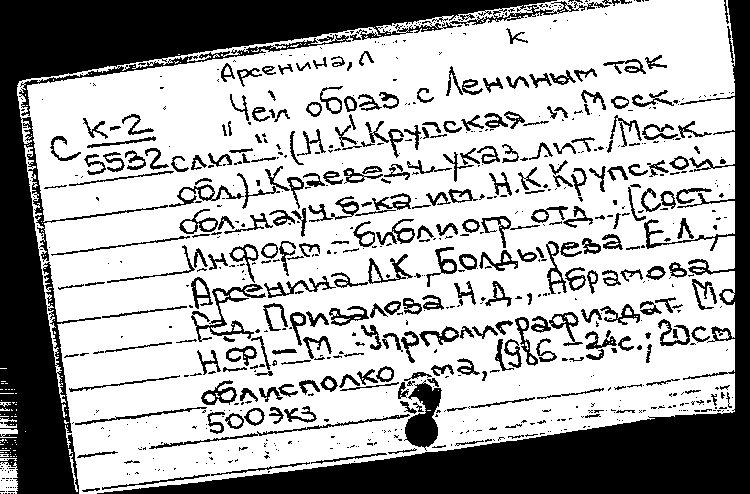 Арсенина, Л
К
"Чей образ с Лениным так
С К-2
5532
слит": (Н.К.Крупская и Моск.
обл.): Краеведч. указ. лит./Моск.
обл. науч. б-ка им. Н.К.Крупской.
Информ.-библиогр отд.; [Сост.
Арсенина Л.К., Болдырева Е.Л.;
Ред. Привалова Н.Д., Абрамова
Н.Ф].-М.: Упрполиграфиздат Мо
облисполко ма, 1986.-34с.; 20см
500экз.